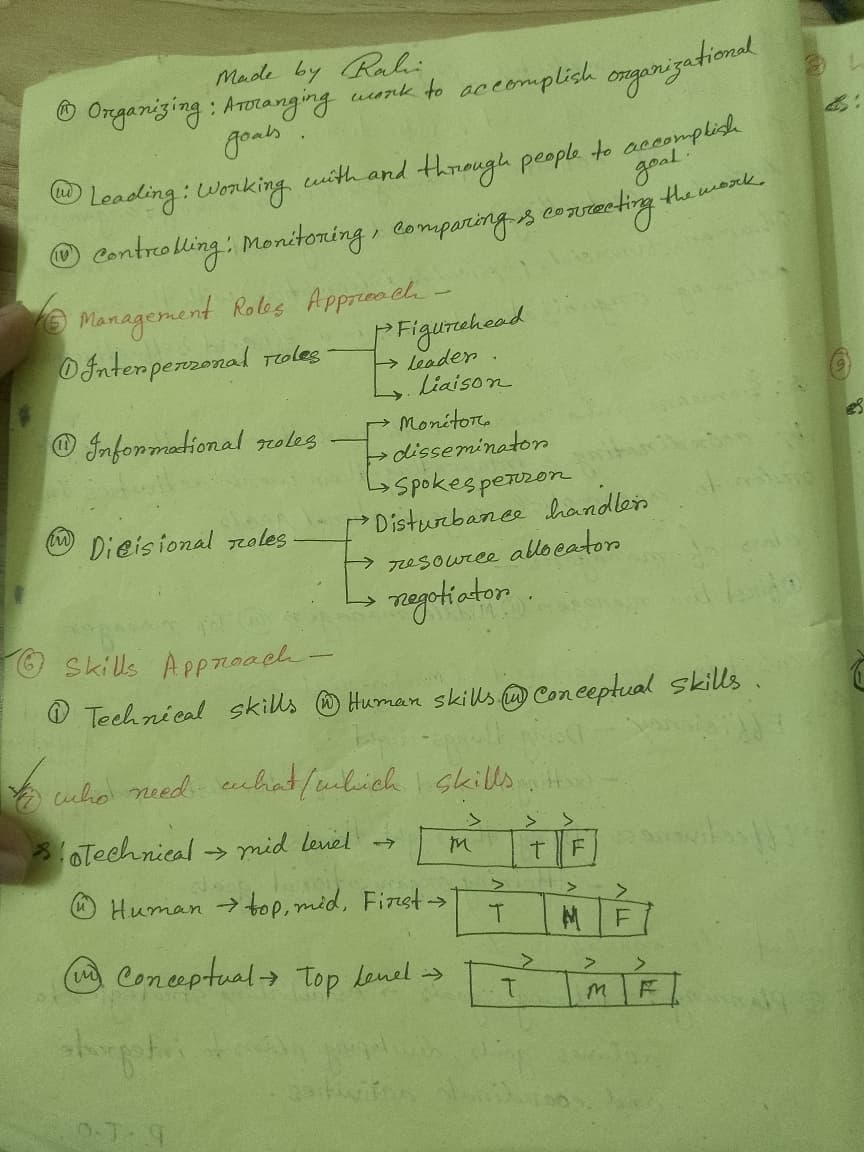 Made by Rahi
(ii) Organizing : Arranging work to accomplish organizational
goals.
(iii) Leading : Working with and through people to accomplish
goal.
(iv) Controlling : Monitoring, comparing & correcting the work.
(5) Management Roles Approach –
(i) Interpersonal roles → Figurehead
→ leader.
→ Liaison
(ii) Informational roles → Monitor
→ disseminator
→ Spokesperson
(iii) Dicisional roles → Disturbance handler
→ resource allocator
→ negotiator.
(6) Skills Approach –
(i) Technical skills (ii) Human skills (iii) Conceptual skills.
(7) who need what/which skills.
(i) Technical → mid level → M > T > F >
(ii) Human → top, mid, First → T > M > F >
(iii) Conceptual → Top level → T > M > F >
P.T.O